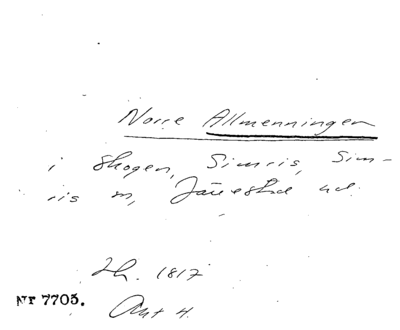 Norre Allmenningen
i Skogen, Simris, Sim-
ris m, Järrestad hd.
Sk. 1817
Nr 7705.
Akt 4.